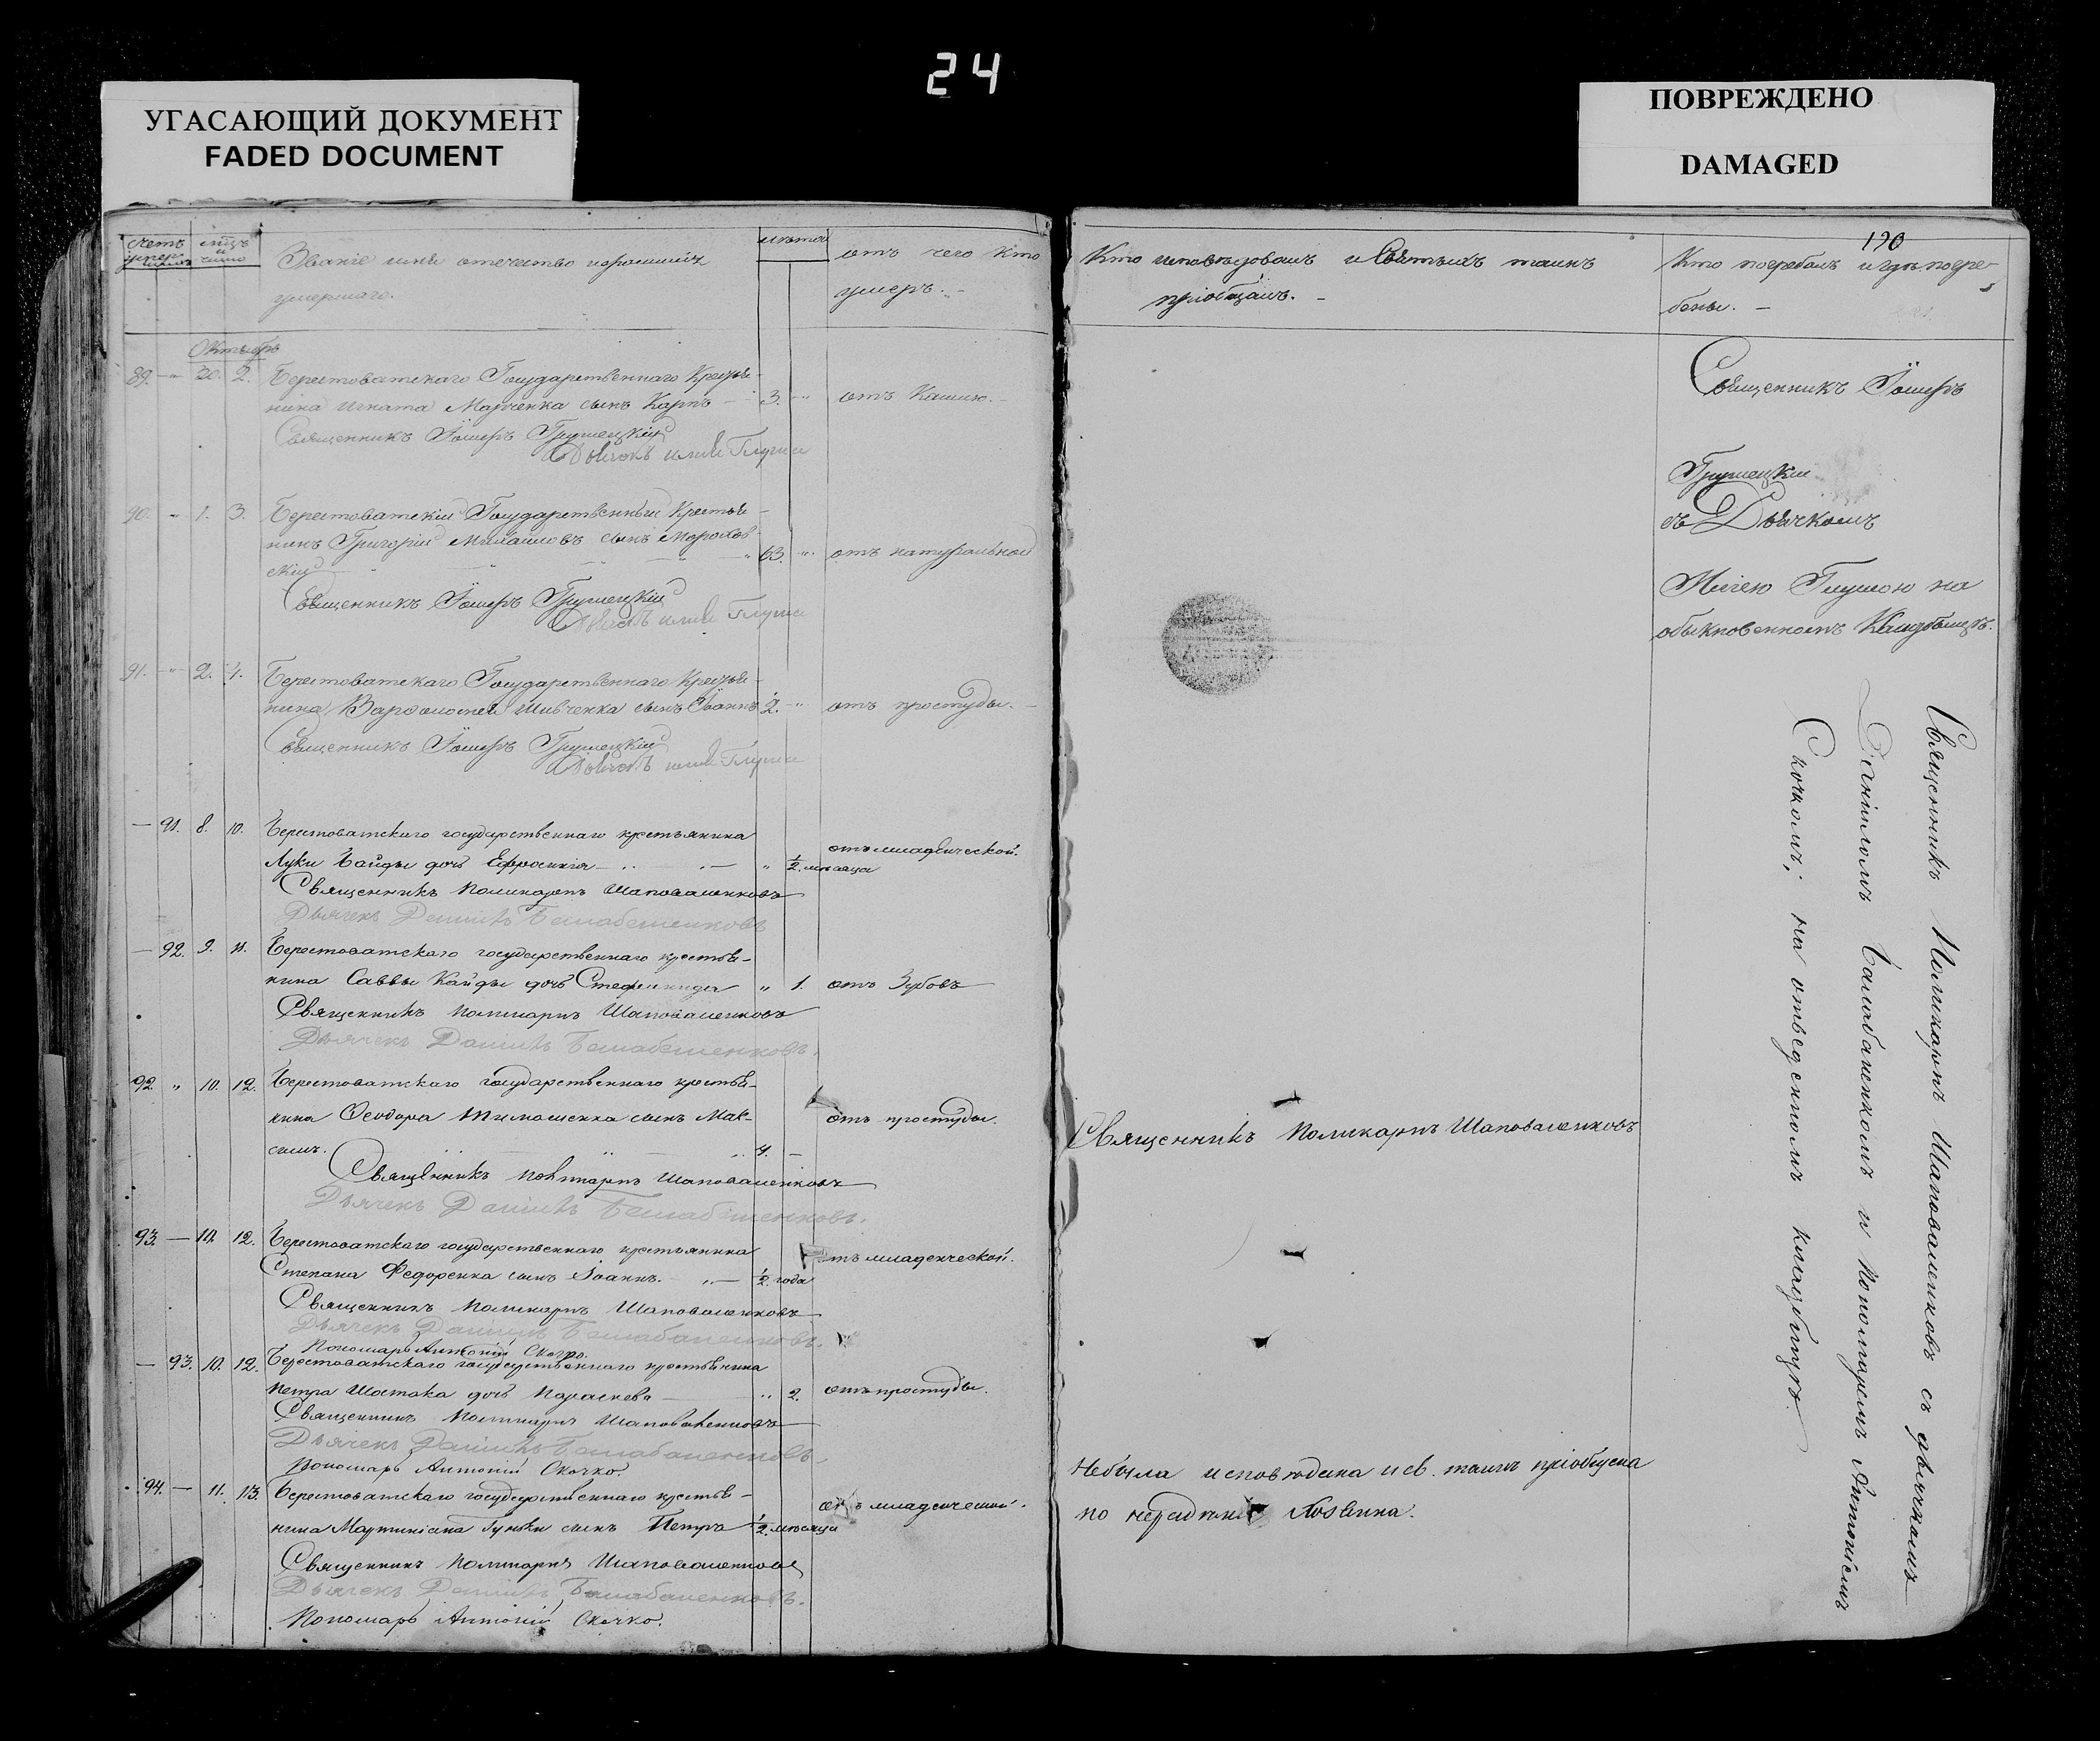 24
УГАСАЮЩИЙ ДОКУМЕНТ
FADED DOCUMENT
ПОВРЕЖДЕНО
DAMAGED
190
Счетъ умер
мѣсць и число
Званіе имя отечество и фамилія
умершаго.
лѣта
отъ чего кто
умеръ.
Кто исповѣдовалъ и Святыхъ таинъ
пріобщалъ.
Кто погребалъ и гдѣ погре-
бены.
Октябрь
89. 30. 2. Берестоватскаго Государственнаго Крестья-
нина Игната Марченка сынъ Карпъ 3. отъ Кашлю.
Священникъ Іосифъ Грушецкій
90. 1. 3. Берестоватскій Государственный Крестья-
нинъ Григорій Михайловъ сынъ Морохов-
скій 63. отъ натуральной
Священникъ Іосифъ Грушецкій
91. 2. 4. Берестоватскаго Государственнаго Крестья-
нина Варфоломея Шевченка сынъ Іоаннъ 2. отъ простуды.
Священникъ Іосифъ Грушецкій
91. 8. 10. Берестоватскаго государственнаго крестьянина
Луки Байды дочь Ефросинія 1/2 мѣсяца отъ младенческой.
Священникъ Поликарпъ Шаповаленковъ
Дьячекъ Даниилъ Балабаненковъ
92. 9. 11. Берестоватскаго государственнаго крестья-
нина Саввы Кайды дочь Стефанида 1. отъ Зубовъ
Священникъ Поликарпъ Шаповаленковъ
Дьячекъ Даниилъ Балабаненковъ.
92. 10. 12. Берестоватскаго государственнаго крестья-
нина Феодора Тимошенка сынъ Мак-
симъ. 4. отъ простуды.
Священникъ Поликарпъ Шаповаленковъ
Дьячекъ Даниилъ Балабаненковъ.
93. 10. 12. Берестоватскаго государственнаго крестьянина
Степана Федоренка сынъ Іоаннъ. 1/2 года отъ младенческой.
Священникъ Поликарпъ Шаповаленковъ
Дьячекъ Даниилъ Балабаненковъ.
Пономарь Антоній Скочко.
93. 10. 12. Берестоватскаго государственнаго крестьянина
Петра Шостака дочь Параскева 2. отъ простуды.
Священникъ Поликарпъ Шаповаленковъ
Дьячекъ Даниилъ Балабаненковъ.
Пономарь Антоній Скочко.
94. 11. 13. Берестоватскаго государственнаго крестья-
нина Мартиніана Гуньки сынъ Петръ 1/2 мѣсяца отъ младенческой.
Священникъ Поликарпъ Шаповаленковъ
Дьячекъ Даниилъ Балабаненковъ.
Пономарь Антоній Скочко.
Священникъ Поликарпъ Шаповаленковъ
Небыла исповѣдана и св. таинъ пріобщена
по нерадѣнію
Священникъ Іосифъ
Грушецкій
съ Дьячкомъ
Глушою на
обыкновенномъ Кладбищѣ.
Священникъ Поликарпъ Шаповаленковъ съ дьячкомъ
Даніиломъ Балабаненкомъ и Пономаремъ Антоніемъ
Скочкомъ; на отведенномъ кладбищѣ.